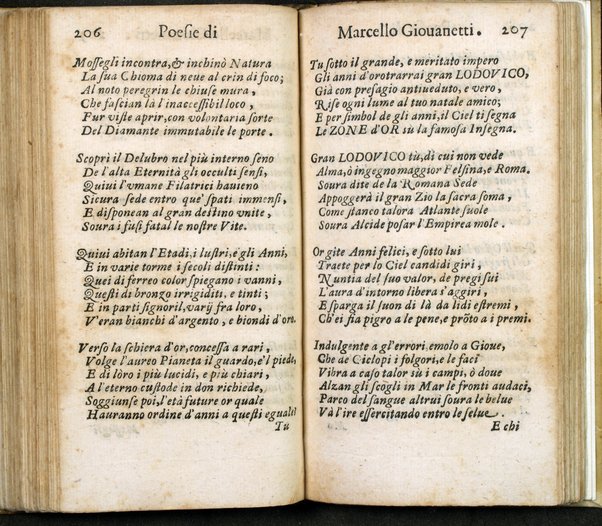 206 Poesie di
Mossegli incontra, & inchinò Natura
La sua Chioma di neue al crin di foco;
Al noto peregrin le chiuse mura,
Che fascian là l'inaccessibil loco,
Fur viste aprir, con volontaria sorte
Del Diamante immutabile le porte.
Scoprì il Delubro nel più interno seno
De l'alta Eternità gli occulti sensi,
Quiui l'vmane Filatrici hauieno
Sicura sede entro que' spati immensi,
E disponean al gran destino vnite,
Soura i fusi fatal le nostre Vite.
Quiui abitan l'Etadi, i lustri, e gli Anni,
E in varie torme i secoli distinti:
Quei di ferreo color spiegano i vanni,
Questi di bronzo irrigiditi, e tinti;
E in parti signoril, varÿ fra loro,
V'eran bianchi d'argento, e biondi d'oro.
Verso la schiera d'or, concessa a rari,
Volge l'aureo Pianeta il guardo, e'l piede,
E di lòro i più lucidi, e più chiari,
A l'eterno custode in don richiede,
Soggiunse poi, l'età future or quale
Hauranno ordine d'anni a questi eguale?
Tu
Marcello Giouanetti. 207
Tu sotto il grande, e meritato impero
Gli anni d'orotrarrai gran LODOVICO,
Già con presagio antiueduto, e vero,
Rise ogni lume al tuo natale amico;
E per simbol de gli anni, il Ciel ti segna
Le ZONE d'OR sù la famosa Insegna.
Gran LODOVICO tù, di cui non vede
Alma, ò ingegno maggior Felsina, e Roma.
Soura di te de la Romana Sede
Appoggerà il gran Zio la sacra soma,
Come stanco talora Atlante suole
Soura Alcide posar l'Empirea mole.
Or gite Anni felici, e sotto lui
Traete per lo Ciel candidi giri,
Nuntia del suo valor, de pregi sui
L'aura d'intorno libera s'aggiri,
E sparga il suon di là da lidi estremi,
Ch'ei sia pigro a le pene, e prōto a i premi.
Indulgente a gl'errori emolo a Gioue,
Che de Ciclopi i folgori, e le faci
Vibra a caso talor sù i campi, ò doue
Alzan gli scogli in Mar le fronti audaci,
Parco del sangue altrui soura le belue
Và l'ire essercitando entro le selue.
E chi